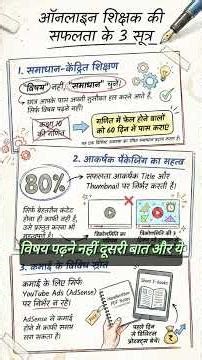 ऑनलाइन शिक्षक की
सफलता के 3 सूत्र
1. समाधान-केंद्रित शिक्षण
"विषय" नहीं, "समाधान" चुनें
छात्र आपके पास अपनी मुसीबत हल करने आते हैं,
सिर्फ विषय पढ़ने नहीं।
कक्षा 10
की गणित
गणित में फेल होने वालों
को 60 दिन में पास कराएं
2. आकर्षक पैकेजिंग का महत्व
80%
सफलता आकर्षक Title और
Thumbnail पर निर्भर करती है।
सिर्फ बेहतरीन कंटेंट
होना ही काफी नहीं है,
उसे प्रस्तुत करना भी
विषय पढ़ने नहीं दूसरी बात और ये
3. कमाई के विविध स्रोत
कमाई के लिए सिर्फ
YouTube Ads (AdSense)
पर निर्भर न रहें।
AdSense से कमाई
होने में काफी समय
लग सकता है।
पहले दिन से डिजिटल
प्रोडक्ट्स बेचें।